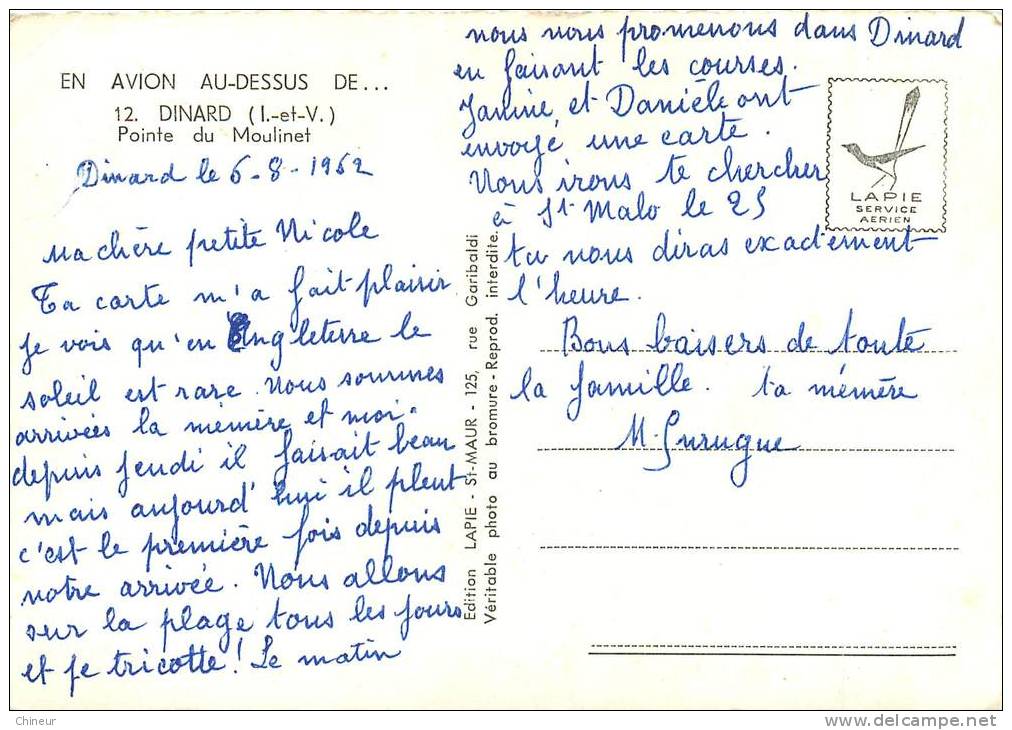 EN AVION AU-DESSUS DE...
12. DINARD (I.-et-V.)
Pointe du Moulinet
Dinard le 6-8-1962
Ma chère petite Nicole
Ta carte m'a fait plaisir
je vois qu'en Angleterre le
soleil est rare. Nous sommes
arrivées la mémère et moi.
depuis jeudi il faisait beau
mais aujourd'hui il pleut
c'est le première fois depuis
notre arrivée. Nous allons
sur la plage tous les jours
et je tricotte! Le matin
nous nous promenons dans Dinard
en faisant les courses.
Janine et Danièle ont
envoyé une carte.
Nous irons te chercher
à St Malo le 25
tu nous diras exactement
l'heure.
Bons baisers de toute
la famille. ta mémère
LAPIE
SERVICE
AERIEN
Edition LAPIE - St-MAUR - 125, rue Garibaldi
Véritable photo au bromure - Reprod. interdite.
Chineur
www.delcampe.net